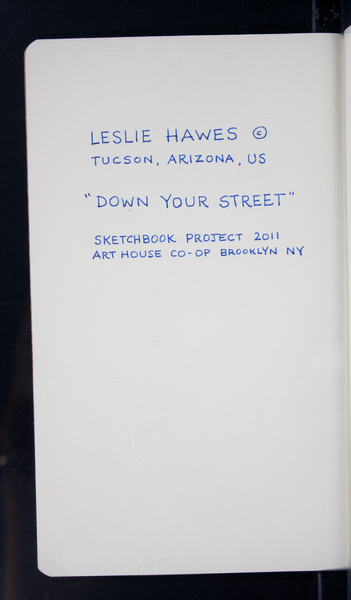 LESLIE HAWES ©
TUCSON, ARIZONA, US
"DOWN YOUR STREET"
SKETCHBOOK PROJECT 2011
ART HOUSE CO-OP BROOKLYN NY